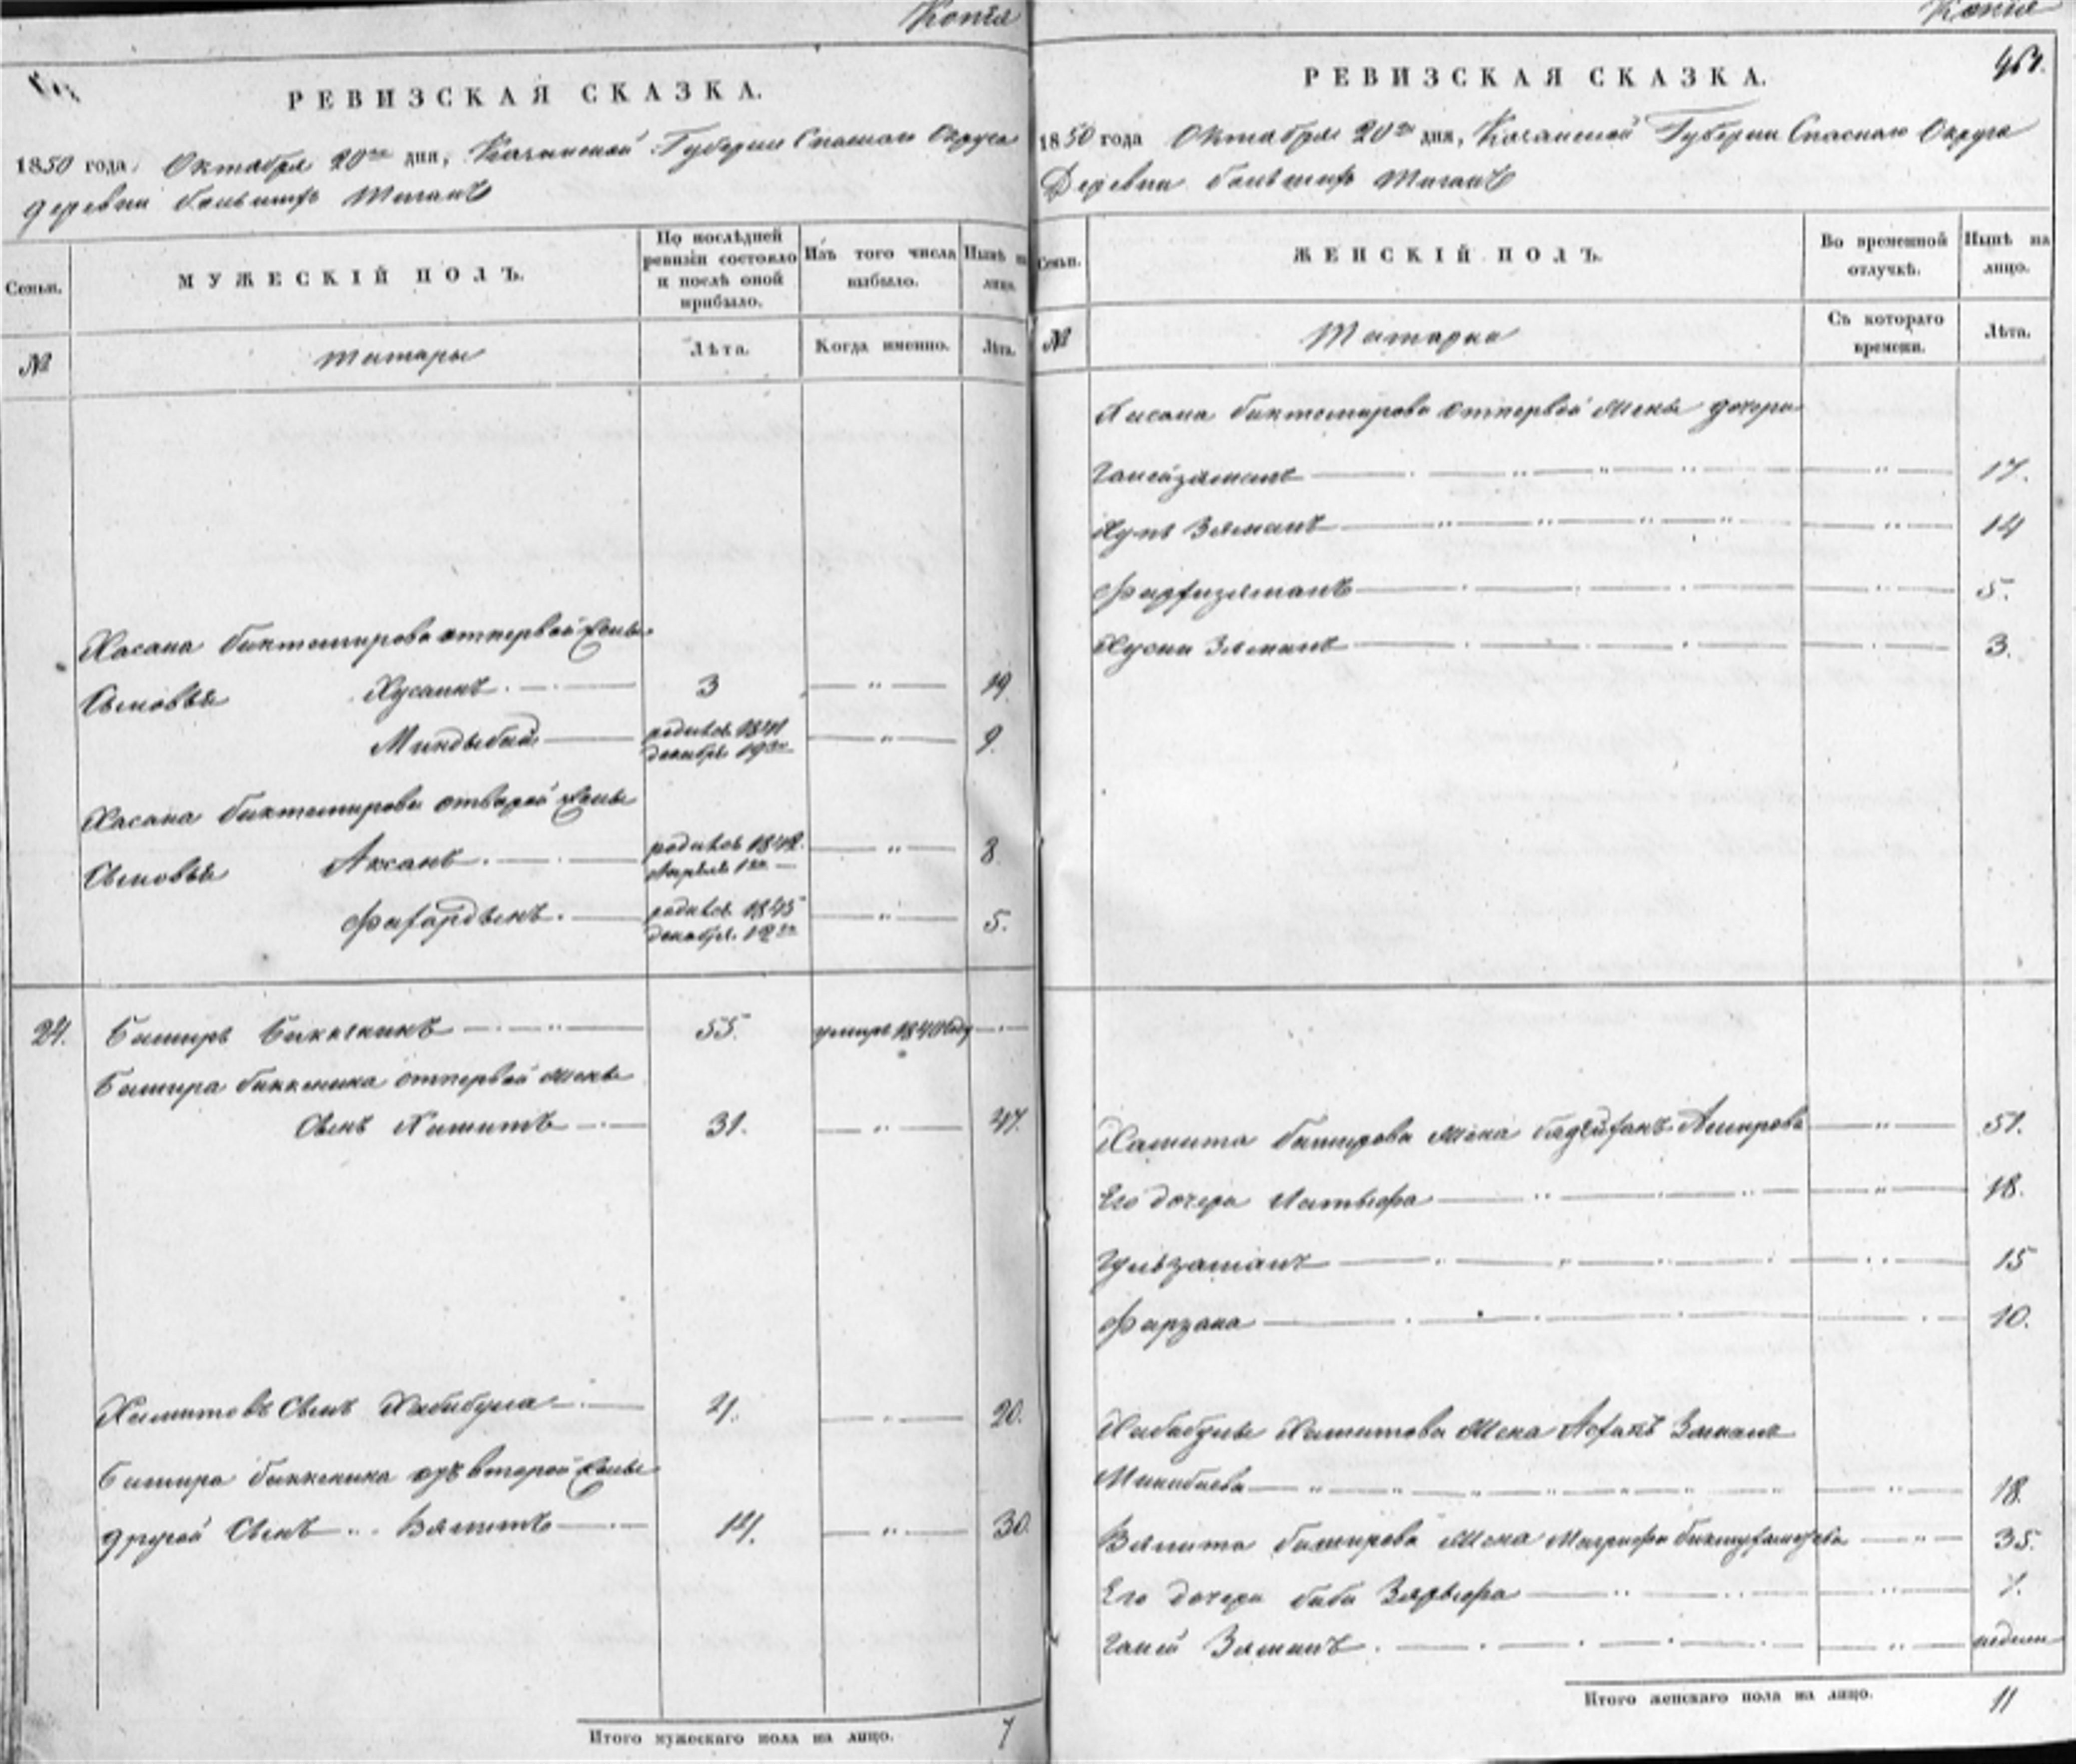 Копія
РЕВИЗСКАЯ СКАЗКА.
1850 года, Октября 20го дня, Казанской Губерніи Спаскаго Округа
деревни большихъ Тиганъ
Семьи.
МУЖЕСКІЙ ПОЛЪ.
По послѣдней ревизіи состояло и послѣ оной прибыло.
Изъ того числа выбыло.
Нынѣ на лицо.
№
татары
Лѣта.
Когда именно.
Лѣта.
Хасана биктемирова отпервой жены
Сыновья Хусаинъ 3 " 19.
Миндыбай родився 1841 декабря 19го " 9.
Хасана биктемирова отвторой жены
Сыновья Аксанъ родився 1842 Апреля 1го " 8.
родився 1845 декабря 12го " 5.
24. Баширъ Биккенинъ 55. умеръ 1840 году
Башира биккенина отпервой жены
Сынъ Хамитъ 31. " 47.
Хамитовъ Сынъ Хабибула 4. " 20.
Башира биккенина второй жены
другой Сынъ Вамитъ 14. " 30.
Итого мужескаго пола на лицо. 7
Копія
464.
РЕВИЗСКАЯ СКАЗКА.
1850 года Октября 20го дня, Казанской Губерніи Спаскаго Округа
Деревни большихъ Тиганъ
Семьи.
ЖЕНСКІЙ ПОЛЪ.
Во временной отлучкѣ.
Нынѣ на лицо.
№
Татарка
Съ котораго времени.
Лѣта.
Хасана биктемирова отпервой жены дочери
" 17.
Зяманъ " 14
" 5.
Зяманъ " 3.
Хамита баширова жена Амирова " 51.
Его дочери " 18.
Гульзаманъ " 15
Фарзана " 10.
Хабибулы Хамитова жена Заманъ
Минибаева " 18.
Вамита баширова жена " 35.
Его дочери биби " 7.
Зяманъ " недели
Итого женскаго пола на лицо. 11